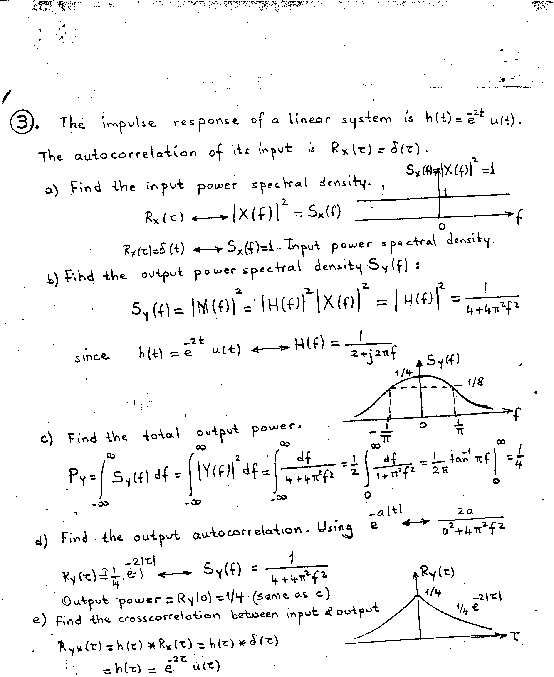 ③. The impulse response of a linear system is h(t) = e^{-2t} u(t).
The autocorrelation of its input is Rx(τ) = δ(τ).
a) Find the input power spectral density.
Sx(f)=|X(f)|² = 1
Rx(τ) ⟷ |X(f)|² = Sx(f)
0
f
Rx(τ)=δ(t) ⟷ Sx(f)=1. Input power spectral density.
b) Find the output power spectral density Sy(f) :
Sy(f) = |Y(f)|² = |H(f)|² |X(f)|² = |H(f)|² = 1/(4+4π²f²)
since h(t) = e^{-2t} u(t) ⟷ H(f) = 1/(2+j2πf)
Sy(f)
1/4
1/8
-1/π 0 1/π f
c) Find the total output power.
Py = ∫_{-∞}^{∞} Sy(f) df = ∫_{-∞}^{∞} |Y(f)|² df = ∫_{-∞}^{∞} df/(4+4π²f²) = 1/2 ∫_0^∞ df/(1+π²f²) = 1/2π tan⁻¹ πf |_0^∞ = 1/4
d) Find the output autocorrelation. Using e^{-a|t|} ⟷ 2a/(a²+4π²f²)
Ry(τ) = 1/4 e^{-2|τ|} ⟷ Sy(f) = 1/(4+4π²f²)
Output power = Ry(0) = 1/4 (same as c)
Ry(τ)
1/4
1/4 e^{-2|τ|}
τ
e) Find the crosscorrelation between input & output
Ryx(τ) = h(τ) * Rx(τ) = h(τ) * δ(τ)
= h(τ) = e^{-2τ} u(τ)